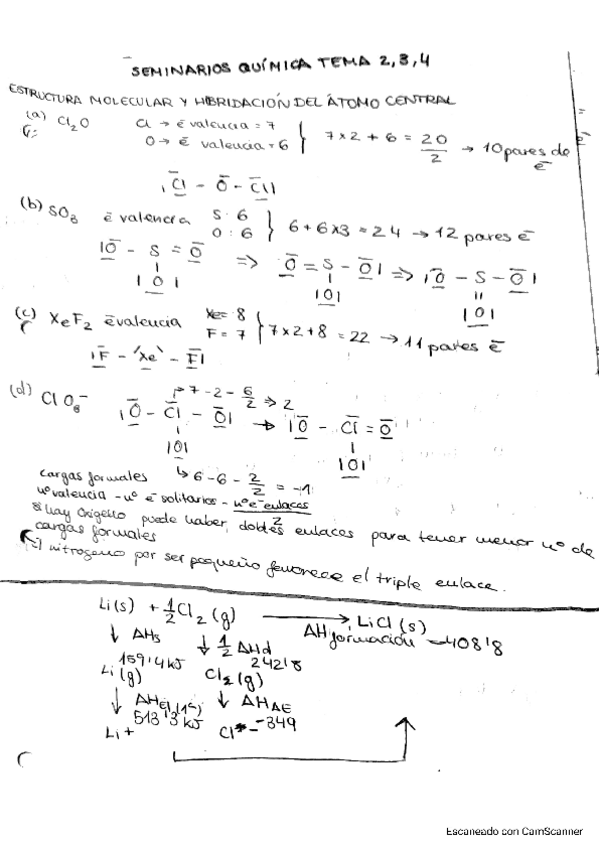 SEMINARIOS QUÍMICA TEMA 2,3,4
ESTRUCTURA MOLECULAR Y HIBRIDACIÓN DEL ÁTOMO CENTRAL
(a) Cl2O Cl → ē valencia = 7
O → ē valencia = 6 } 7x2 + 6 = 20/2 → 10 pares de ē
|Cl - O - Cl|
(b) SO3 ē valencia S: 6
O: 6 } 6 + 6x3 = 24 → 12 pares ē
|O - S = O ⇒ O = S - O| ⇒ |O - S - O|
|O| |O| |O|
(c) XeF2 ē valencia Xe = 8
F = 7 } 7x2 + 8 = 22 → 11 pares ē
|F - Xe - F|
(d) ClO3- → 7 - 2 - 6/2 ⇒ 2
|O - Cl - O| → |O - Cl = O
|O| |O|
cargas formales ↳ 6 - 6 - 2/2 = -1
nº valencia - nº ē solitarios - nº e- enlaces/2
Si hay Oxígeno puede haber dobles enlaces para tener menor nº de
cargas formales
El nitrogeno por ser pequeño favorece el triple enlace.
Li(s) + 1/2 Cl2 (g) → LiCl (s)
ΔH formación -408'8
↓ ΔHs ↓ 1/2 ΔHd
159'4 kJ 242'8
Li(g) Cl2(g)
↓ ΔHEI (1ª) ↓ ΔHAE
513'3 kJ -349
Li+ Cl-
Escaneado con CamScanner